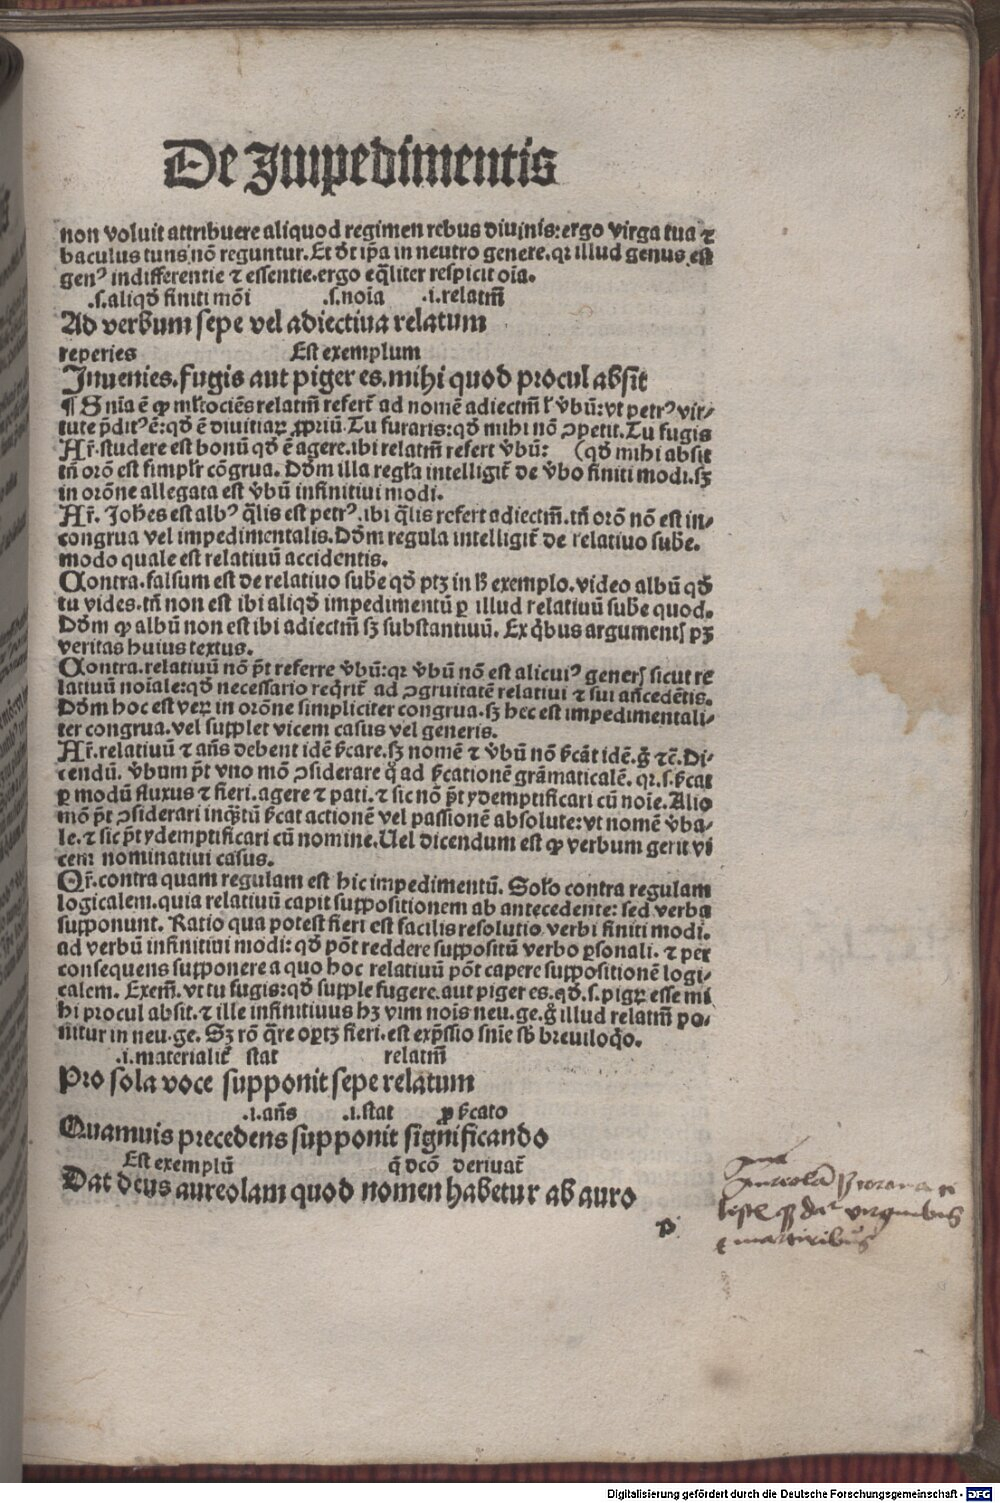 De Impedimentis
non voluit attribuere aliquod regimen rebus diuinis: ergo virga tua ⁊
baculus tuus nō reguntur. Et dt̄ ip̄a in neutro genere. qꝛ illud genus est
genꝰ indifferentie ⁊ essentie. ergo eq̄liter respicit oīa.
.s. aliqd̄ finiti mōi .s. noīa .i. relatm̄
Ad verbum sepe vel adiectiua relatum
reperies Est exemplum
Inuenies. fugis aut piger es. mihi quod procul absit
¶ Snīa ē ꝙ ml̄tociēs relatm̄ refert̄ ad nomē adiectm̄ l̓ v̄bū: vt petrꝰ vir⸗
tute p̄ditꝰ ē: qd̄ ē diuitiaꝝ ꝓpriū. Tu furaris: qd̄ mihi nō ꝯpetit. Tu fugis
Ar̄. studere est bonū qd̄ ē agere. ibi relatm̄ refert v̄bū: (qd̄ mihi absit
tn̄ orō est simpl̓r cōgrua. Dd̄m illa regl̓a intelligit̄ de v̄bo finiti modi. sꝫ
in orōne allegata est v̄bū infinitiui modi.
Ar̄. Joh̄es est albꝰ q̄lis est petrꝰ. ibi q̄lis refert adiectm̄. tn̄ orō nō est in⸗
congrua vel impedimentalis. Dd̄m regula intelligit̄ de relatiuo sube.
modo quale est relatiuū accidentis.
Contra. falsum est de relatiuo sube qd̄ ptꝫ in h̄ exemplo. video albū qd̄
tu vides. tn̄ non est ibi aliqd̄ impedimentū ꝑ illud relatiuū sube quod.
Dd̄m ꝙ albū non est ibi adiectm̄ sꝫ substantiuū. Ex q̄bus argumentꝭ pꝫ
veritas huius textus.
Contra. relatiuū nō p̄t referre v̄bū: qꝛ v̄bū nō est alicuiꝰ generꝭ sicut re
latiuū noīale: qd̄ necessario reqrit̄ ad ꝯgruitatē relatiui ⁊ sui an̄cedētis.
Dd̄m hoc est veꝝ in orōne simpliciter congrua. sꝫ hec est impedimentali⸗
ter congrua. vel supplet vicem casus vel generis.
Ar̄. relatiuū ⁊ an̄s debent idē s̄care. sꝫ nomē ⁊ v̄bū nō s̄cāt idē. g̊ ⁊c̄. Di⸗
cendū. v̄bum p̄t vno mō ꝯsiderare q̊ ad s̄cationē grāmaticalē. qꝛ. s. s̄cat
ꝑ modū fluxus ⁊ fieri. agere ⁊ pati. ⁊ sic nō p̄t ydemptificari cū noīe. Alio
mō p̄t ꝯsiderari inqꝫtū s̄cat actionē vel passionē absolute: vt nomē v̄ba⸗
le. ⁊ sic p̄t ydemptificari cū nomine. Uel dicendum est ꝙ verbum gerit vi
cem nominatiui casus.
Qr̄. contra quam regulam est hic impedimentū. Sol̓o contra regulam
logicalem. quia relatiuū capit suppositionem ab antecedente: sed verba
supponunt. Ratio qua potest fieri est facilis resolutio verbi finiti modi.
ad verbū infinitiui modi: qd̄ pōt reddere suppositū verbo ꝑsonali. ⁊ per
consequens supponere a quo hoc relatiuū pōt capere suppositionē logi⸗
calem. Exem̄. vt tu fugis: qd̄ supple fugere. aut piger es. qd̄. s. pigꝝ esse mi
hi procul absit. ⁊ ille infinitiuus hꝫ vim noīs neu. ge. g̊ illud relatm̄ po⸗
nitur in neu. ge. Sꝫ rō q̄re oꝑtꝫ fieri. est exp̄ssio snīe sb̄ breuiloq̊o.
.i. materialit̄ stat relatm̄
Pro sola voce supponit sepe relatum
.i. an̄s .i. stat ꝓ s̄cato
Quamuis precedens supponit significando
Est exemplū q̄ dcō deriuat̄
Dat deus aureolam quod nomen habetur ab auro
p
Aureola ...
... virginibus
⁊ martiribus